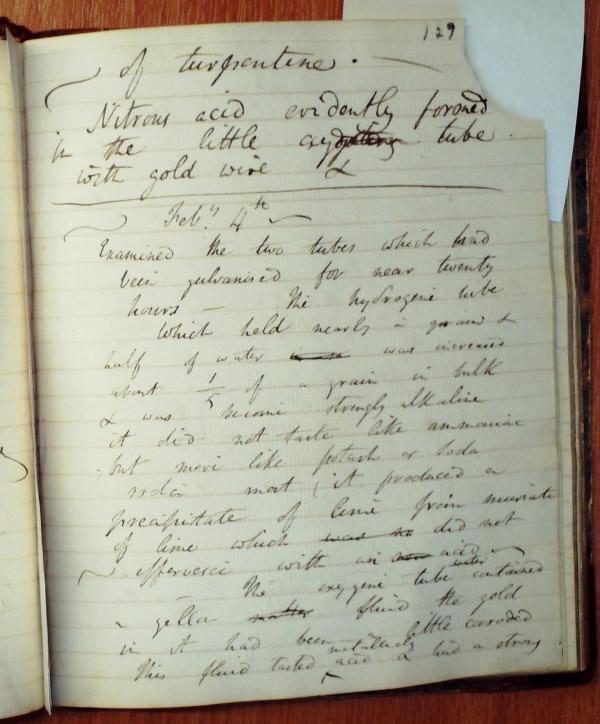 129
of turpentine.
Nitrous acid evidently formed
in the little oxygene tube.
with gold wire &
Feby. 4th
Examined the two tubes which had
been galvanised for near twenty
hours — The hydrogene tube
which held nearly a grain &
half of water was increased
about 1/5 of a grain in bulk
& was become strongly alkaline
it did not taste like ammoniac
but more like potash or soda
most it produced a
precipitate of lime from muriate
of lime which was no did not
effervesce with an acid
The oxygene tube water contained
yellow matter fluid the gold
in it had been little corroded
This fluid tasted metallicly acid & had a strong